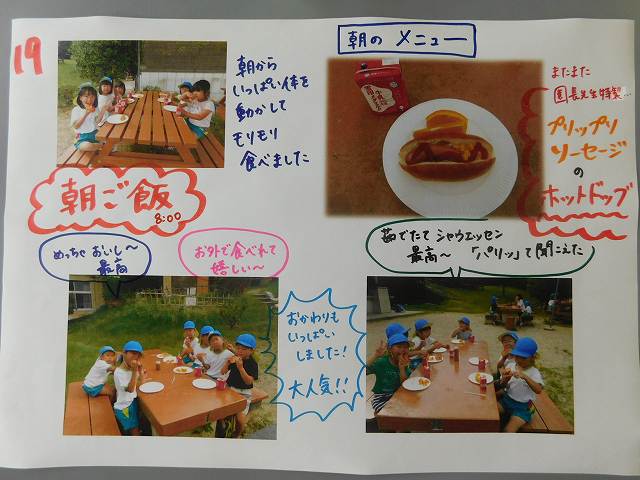 19
朝から
いっぱい体を
動かして
モリモリ
食べました
朝のメニュー
またまた
園長先生特製…
プリップリ
ソーセージ
の
ホットドッグ
朝ご飯
8:00
めっちゃおいし〜
最高
お外で食べれて
嬉しい〜
茹でたてシャウエッセン
最高〜「パリッ」て聞こえた
おかわりも
いっぱい
しました!
大人気!!